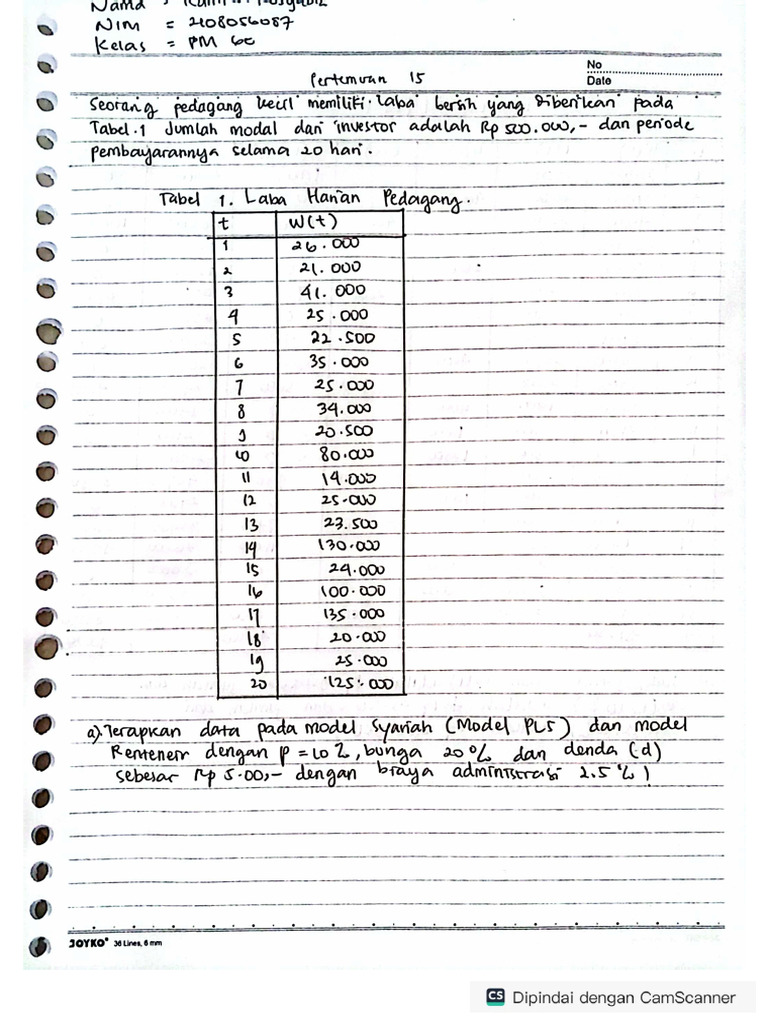 Nama :
NIM = 2108056087
Kelas = PM 6C
No
Date
Pertemuan 15
Seorang pedagang kecil memiliki laba bersih yang diberikan pada
Tabel.1 Jumlah modal dari investor adalah Rp 500.000,- dan periode
pembayarannya selama 20 hari.
Tabel 1. Laba Harian Pedagang.
t W(t)
1 26.000
2 21.000
3 41.000
4 25.000
5 22.500
6 35.000
7 25.000
8 34.000
9 20.500
10 80.000
11 14.000
12 25.000
13 23.500
14 130.000
15 24.000
16 100.000
17 135.000
18 20.000
19 25.000
20 125.000
a). Terapkan data pada model Syariah (Model PLS) dan model
Rentenerr dengan P = 10%, bunga 20% dan denda (d)
sebesar Rp 5.00,- dengan biaya administrasi 2.5%!
JOYKO® 36 Lines, 6 mm
CS Dipindai dengan CamScanner